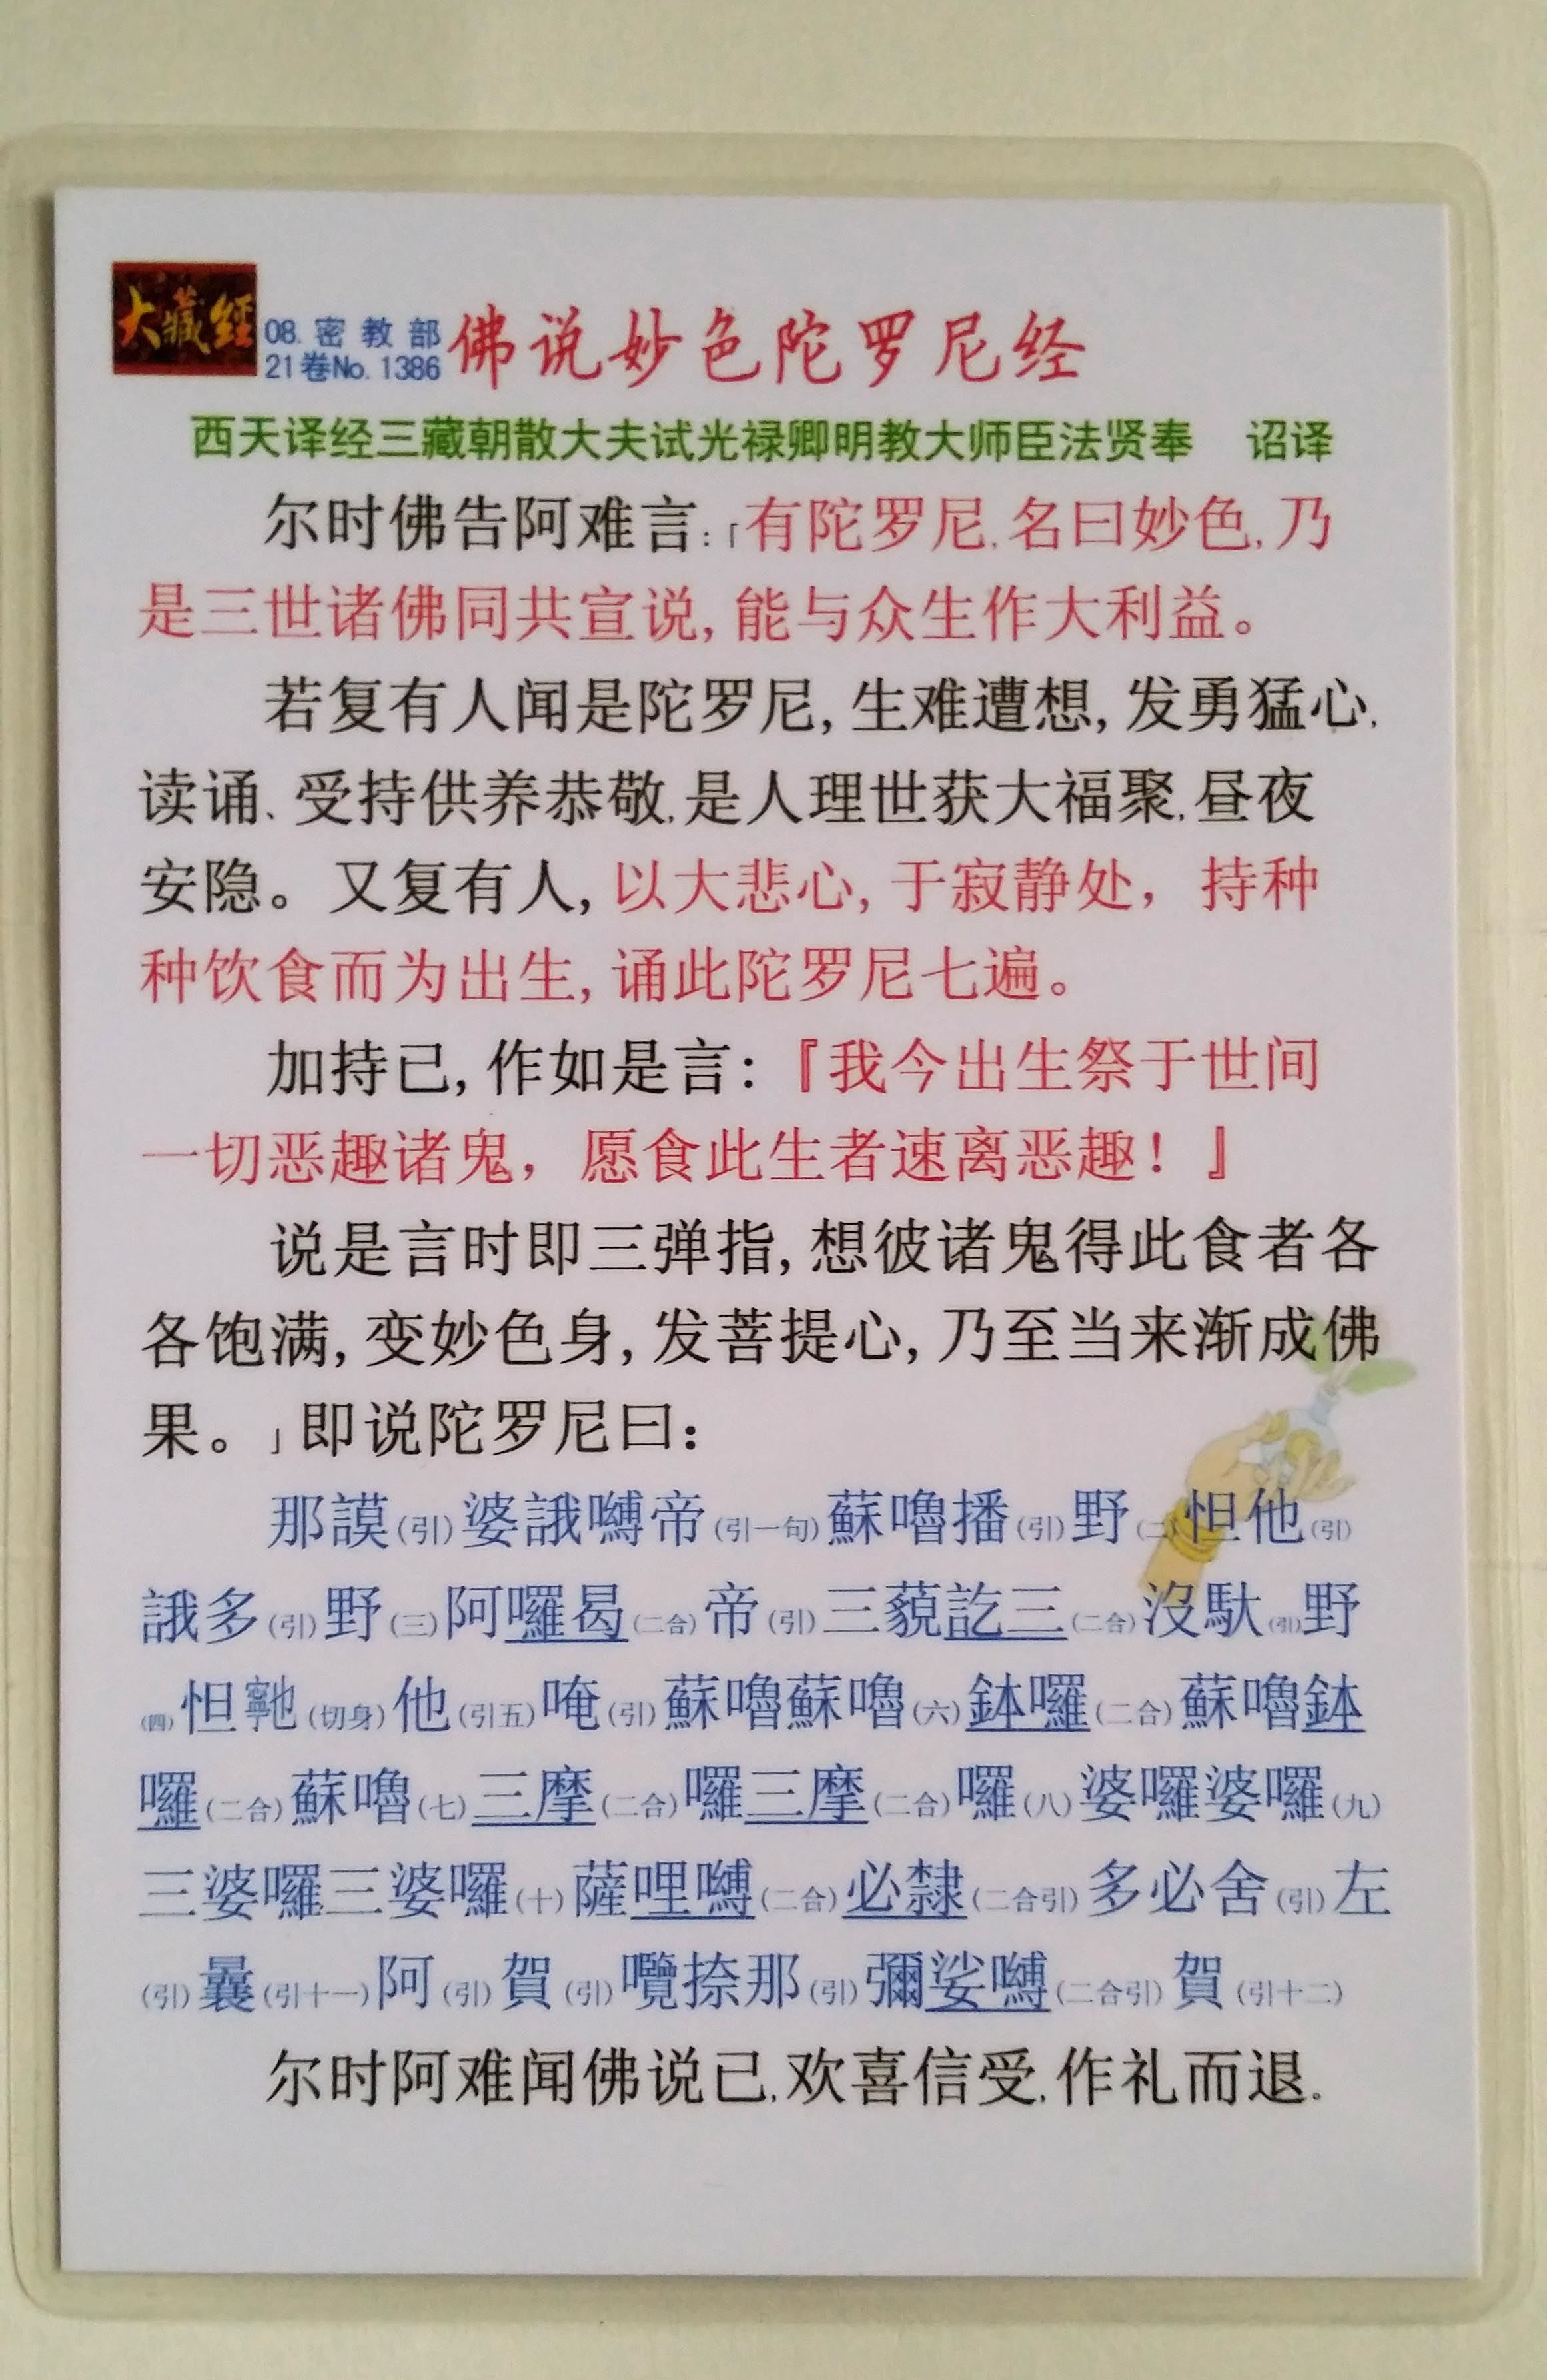 大藏經
08.密教部
21卷No.1386
佛说妙色陀罗尼经
西天译经三藏朝散大夫试光禄卿明教大师臣法贤奉 诏译
尔时佛告阿难言:「有陀罗尼,名曰妙色,乃
是三世诸佛同共宣说,能与众生作大利益。
若复有人闻是陀罗尼,生难遭想,发勇猛心,
读诵、受持供养恭敬,是人理世获大福聚,昼夜
安隐。又复有人,以大悲心,于寂静处，持种
种饮食而为出生,诵此陀罗尼七遍。
加持已,作如是言:『我今出生祭于世间
一切恶趣诸鬼，愿食此生者速离恶趣！』
说是言时即三弹指,想彼诸鬼得此食者各
各饱满,变妙色身,发菩提心,乃至当来渐成佛
果。」即说陀罗尼曰:
那謨(引)婆誐嚩帝(引一句)蘇嚕播(引)野(二)怛他(引)
誐多(引)野(三)阿囉曷(二合)帝(引)三藐訖三(二合)沒馱(引)野
(四)怛寧也(切身)他(引五)唵(引)蘇嚕蘇嚕(六)鉢囉(二合)蘇嚕鉢
囉(二合)蘇嚕(七)三摩(二合)囉三摩(二合)囉(八)婆囉婆囉(九)
三婆囉三婆囉(十)薩哩嚩(二合)必隸(二合引)多必舍(引)左
(引)曩(引十一)阿(引)賀(引)囕捺那(引)彌娑嚩(二合引)賀(引十二)
尔时阿难闻佛说已,欢喜信受,作礼而退。